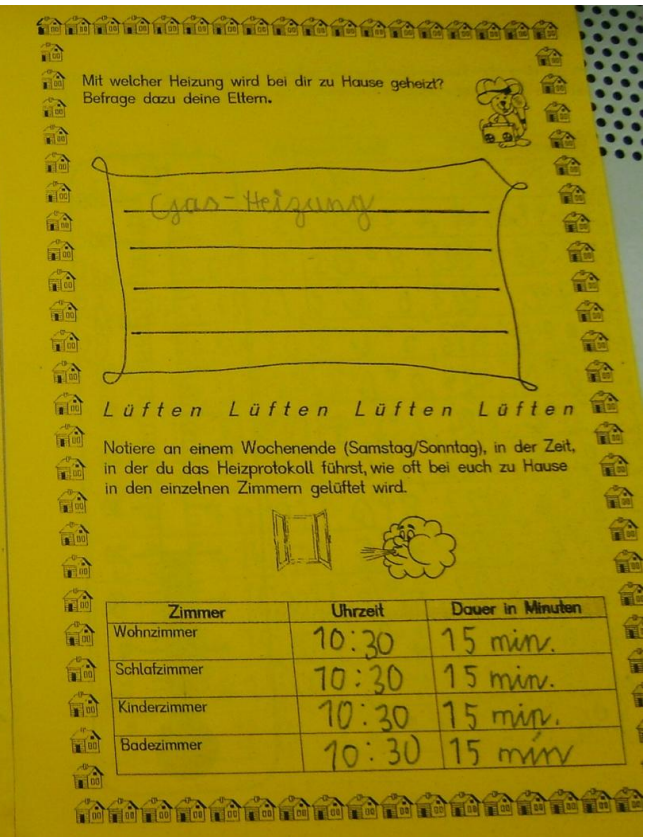 Mit welcher Heizung wird bei dir zu Hause geheizt?
Befrage dazu deine Eltern.
Gas-Heizung
Lüften Lüften Lüften Lüften
Notiere an einem Wochenende (Samstag/Sonntag), in der Zeit,
in der du das Heizprotokoll führst, wie oft bei euch zu Hause
in den einzelnen Zimmern gelüftet wird.
Zimmer Uhrzeit Dauer in Minuten
Wohnzimmer 10:30 15 min.
Schlafzimmer 10:30 15 min.
Kinderzimmer 10:30 15 min.
Badezimmer 10:30 15 min